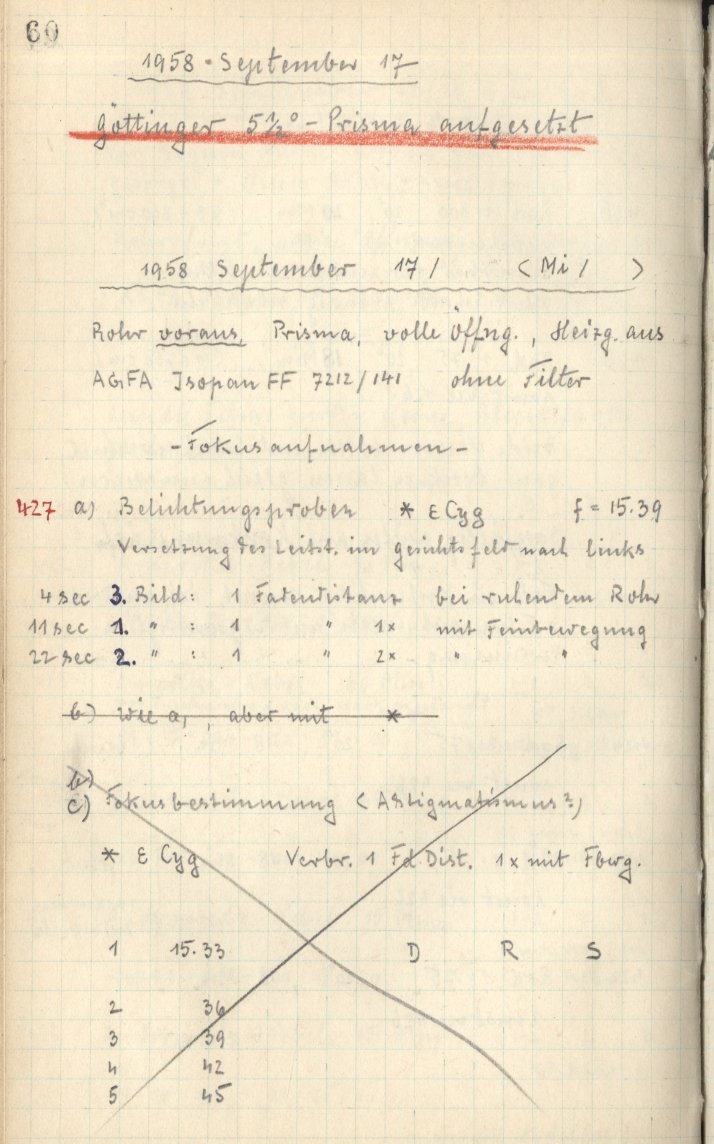 60
1958 · September 17
Göttinger 5½° - Prisma aufgesetzt
1958 September 17 / ( Mi / )
Rohr voraus, Prisma, volle Öffng., Heizg. aus
AGFA Isopan FF 7212/141 ohne Filter
- Fokusaufnahmen -
427 a) Belichtungsproben * ε Cyg f = 15.39
Versetzung des Leitst. im Gesichtsfeld nach links
4 sec 3. Bild : 1 Fadendistanz bei ruhendem Rohr
11 sec 1. " : 1 " 1x mit Feinbewegung
22 sec 2. " : 1 " 2x " "
b) wie a, , aber mit *
b)
c) Fokusbestimmung ( Astigmatismus ? )
* ε Cyg Verbr. 1 Fd. Dist. 1x mit Fbwg.
1 15.33 D R S
2 36
3 39
4 42
5 45